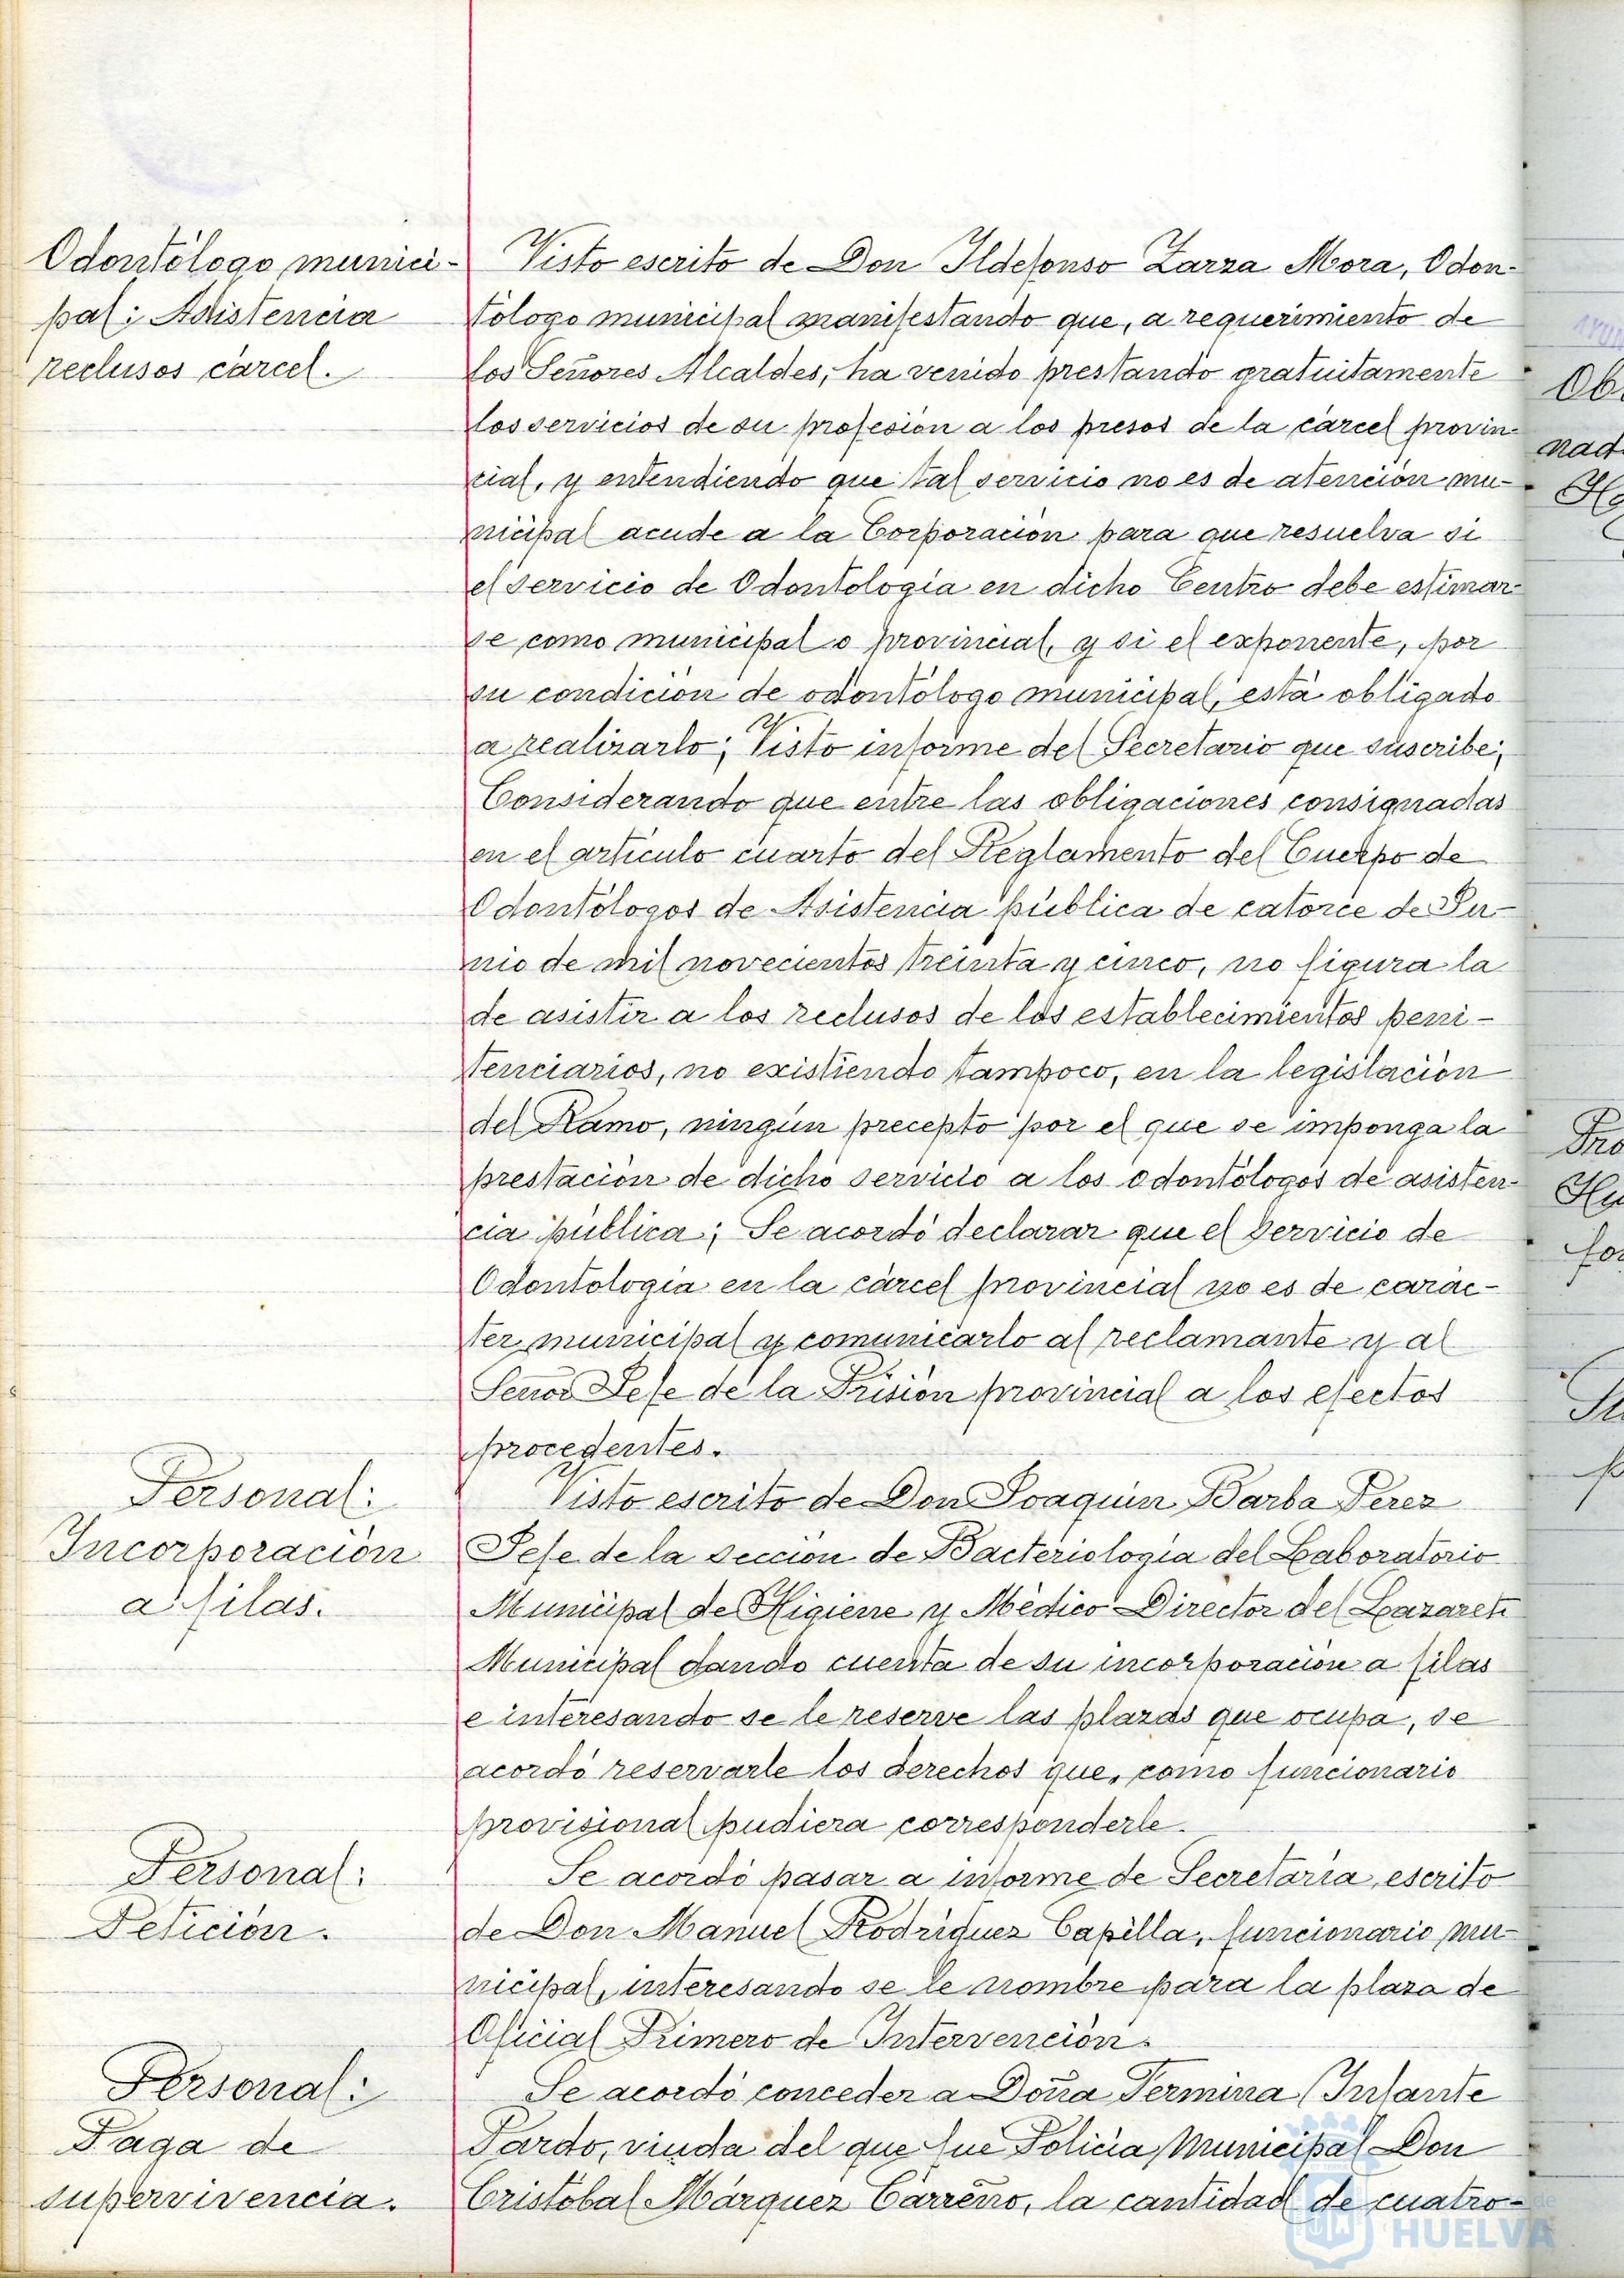 Odontólogo munici-
pal: Asistencia
reclusos cárcel.
Visto escrito de Don Ildefonso Zarza Mora, Odon-
tólogo municipal manifestando que, a requerimiento de
los Señores Alcaldes, ha venido prestando gratuitamente
los servicios de su profesión a los presos de la cárcel provin-
cial, y entendiendo que tal servicio no es de atención mu-
nicipal acude a la Corporación para que resuelva si
el servicio de Odontología en dicho Centro debe estimar-
se como municipal o provincial, y si el exponente, por
su condición de odontólogo municipal, está obligado
a realizarlo; Visto informe del Secretario que suscribe;
Considerando que entre las obligaciones consignadas
en el artículo cuarto del Reglamento del Cuerpo de
Odontólogos de Asistencia pública de catorce de Ju-
nio de mil novecientos treinta y cinco, no figura la
de asistir a los reclusos de los establecimientos peni-
tenciarios, no existiendo tampoco, en la legislación
del Ramo, ningún precepto por el que se imponga la
prestación de dicho servicio a los odontólogos de asisten-
cia pública; Se acordó declarar que el Servicio de
Odontología en la cárcel provincial no es de carác-
ter municipal y comunicarlo al reclamante y al
Señor Jefe de la Prisión provincial a los efectos
procedentes.
Personal:
Incorporación
a filas.
Visto escrito de Don Joaquín Barba Pérez
Jefe de la sección de Bacteriología del Laboratorio
Municipal de Higiene y Médico Director del Lazareto
Municipal dando cuenta de su incorporación a filas
e interesando se le reserve las plazas que ocupa, se
acordó reservarle los derechos que, como funcionario
provisional pudiera corresponderle.
Personal:
Petición.
Se acordó pasar a informe de Secretaría, escrito
de Don Manuel Rodríguez Capilla, funcionario mu-
nicipal, interesando se le nombre para la plaza de
Oficial Primero de Intervención.
Personal:
Paga de
supervivencia.
Se acordó conceder a Doña Fermina Infante
Pardo, viuda del que fue Policía Municipal Don
Cristóbal Márquez Carreño, la cantidad de cuatro-
HUELVA